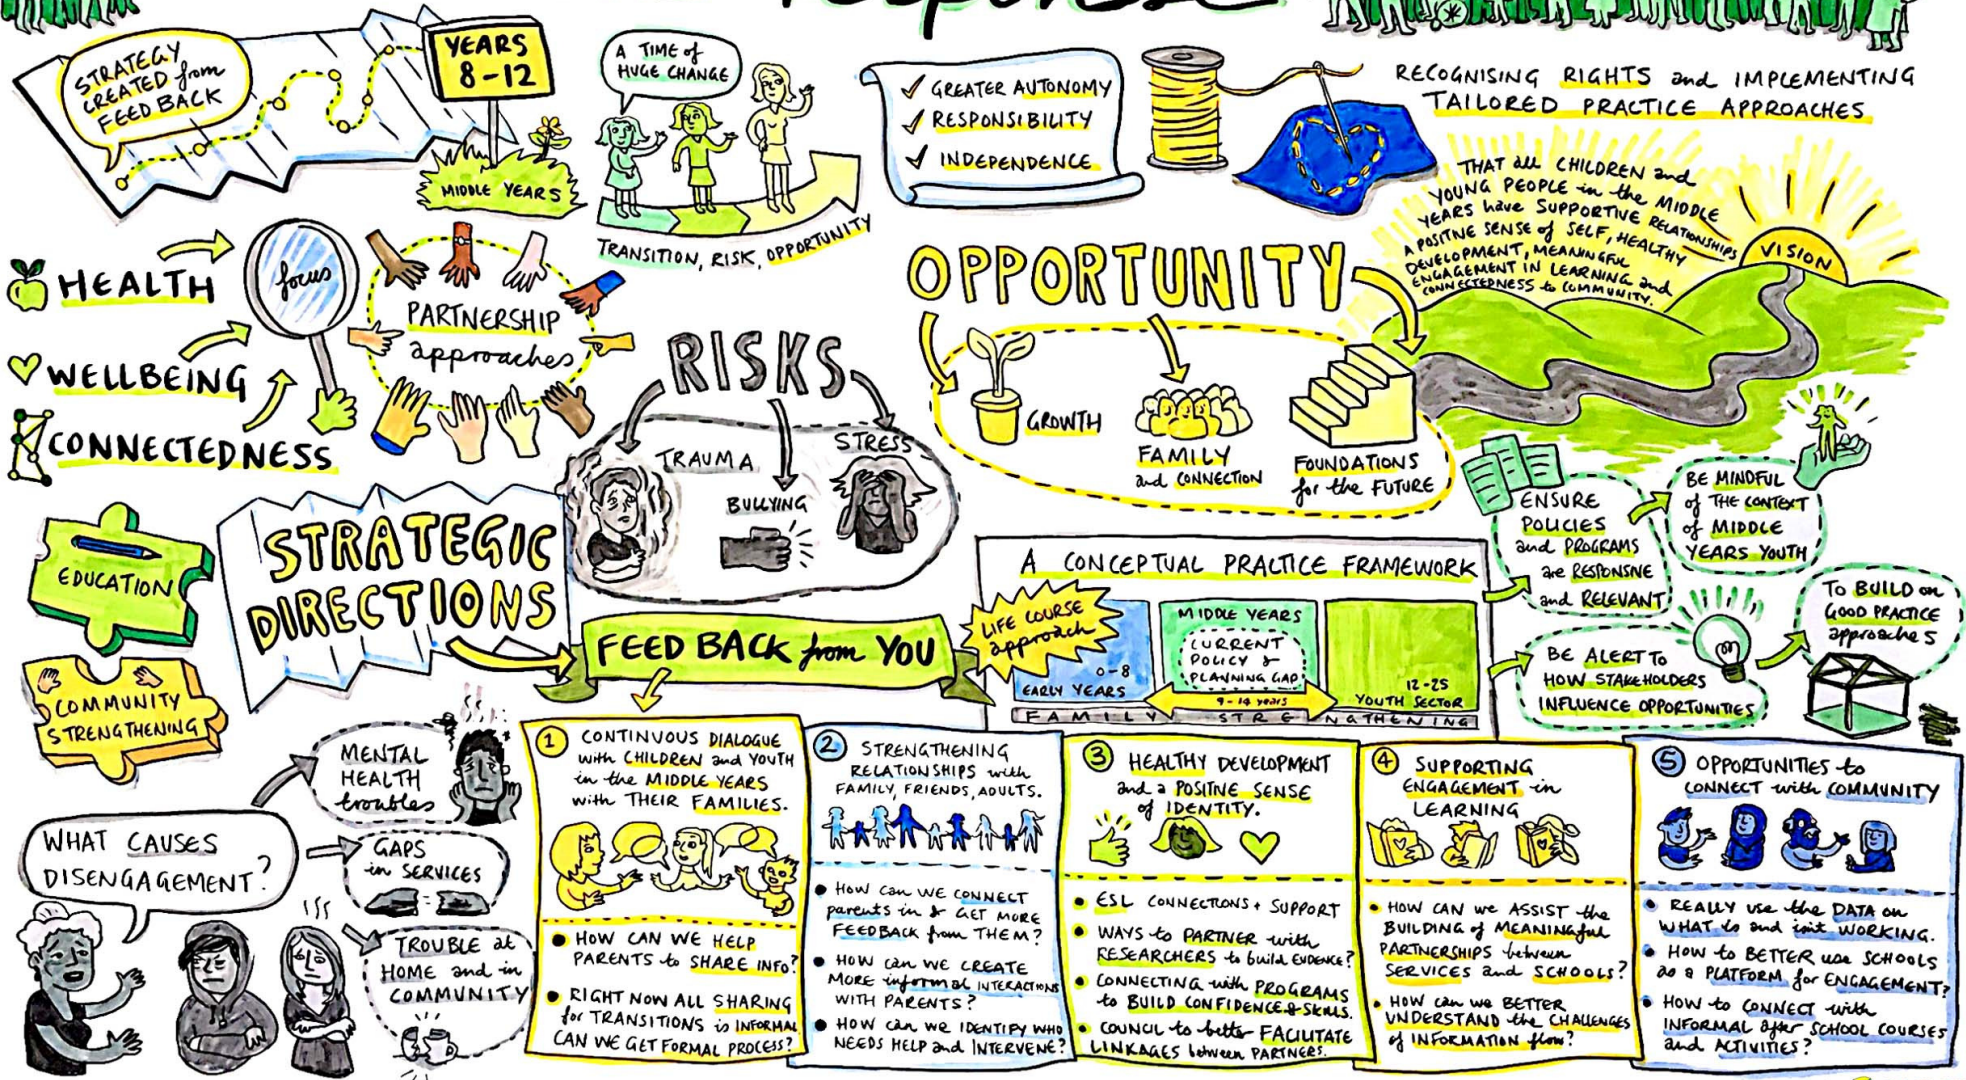 response
STRATEGY
CREATED from
FEED BACK
YEARS
8-12
MIDDLE YEARS
A TIME of
HUGE CHANGE
TRANSITION, RISK, OPPORTUNITY
GREATER AUTONOMY
RESPONSIBILITY
INDEPENDENCE
RECOGNISING RIGHTS and IMPLEMENTING
TAILORED PRACTICE APPROACHES
THAT all CHILDREN and
YOUNG PEOPLE in the MIDDLE
YEARS have SUPPORTIVE RELATIONSHIPS
A POSITIVE SENSE of SELF, HEALTHY
DEVELOPMENT, MEANINGFUL
ENGAGEMENT IN LEARNING and
CONNECTEDNESS to COMMUNITY.
VISION
HEALTH
WELLBEING
CONNECTEDNESS
focus
PARTNERSHIP
approaches
RISKS
TRAUMA
BULLYING
STRESS
OPPORTUNITY
GROWTH
FAMILY
and CONNECTION
FOUNDATIONS
for the FUTURE
EDUCATION
COMMUNITY
STRENGTHENING
STRATEGIC
DIRECTIONS
FEED BACK from YOU
A CONCEPTUAL PRACTICE FRAMEWORK
LIFE COURSE
approach
0-8
EARLY YEARS
MIDDLE YEARS
CURRENT
POLICY &
PLANNING GAP
9-14 years
12-25
YOUTH SECTOR
FAMILY STRENGTHENING
ENSURE
POLICIES
and PROGRAMS
are RESPONSIVE
and RELEVANT
BE MINDFUL
of THE CONTEXT
of MIDDLE
YEARS YOUTH
BE ALERT TO
HOW STAKEHOLDERS
INFLUENCE OPPORTUNITIES
TO BUILD on
GOOD PRACTICE
approaches
WHAT CAUSES
DISENGAGEMENT?
MENTAL
HEALTH
troubles
GAPS
in SERVICES
TROUBLE at
HOME and in
COMMUNITY
1 CONTINUOUS DIALOGUE
with CHILDREN and YOUTH
in the MIDDLE YEARS
with THEIR FAMILIES.
HOW CAN WE HELP
PARENTS to SHARE INFO?
RIGHT NOW ALL SHARING
for TRANSITIONS is INFORMAL
CAN WE GET FORMAL PROCESS?
2 STRENGTHENING
RELATIONSHIPS with
FAMILY, FRIENDS, ADULTS.
HOW can WE CONNECT
parents in & GET MORE
FEEDBACK from THEM?
HOW can WE CREATE
MORE informal INTERACTIONS
WITH PARENTS?
HOW can WE IDENTIFY WHO
NEEDS HELP and INTERVENE?
3 HEALTHY DEVELOPMENT
and a POSITIVE SENSE
of IDENTITY.
ESL CONNECTIONS + SUPPORT
WAYS to PARTNER with
RESEARCHERS to build EVIDENCE?
CONNECTING with PROGRAMS
to BUILD CONFIDENCE & SKILLS.
COUNCIL to better FACILITATE
LINKAGES between PARTNERS.
4 SUPPORTING
ENGAGEMENT in
LEARNING
HOW CAN we ASSIST the
BUILDING of MEANINGful
PARTNERSHIPS between
SERVICES and SCHOOLS?
HOW can we BETTER
UNDERSTAND the CHALLENGES
of INFORMATION flow?
5 OPPORTUNITIES to
CONNECT with COMMUNITY
REALLY use the DATA on
WHAT is and isn't WORKING.
HOW to BETTER use SCHOOLS
as a PLATFORM for ENGAGEMENT?
HOW to CONNECT with
INFORMAL after SCHOOL COURSES
and ACTIVITIES?